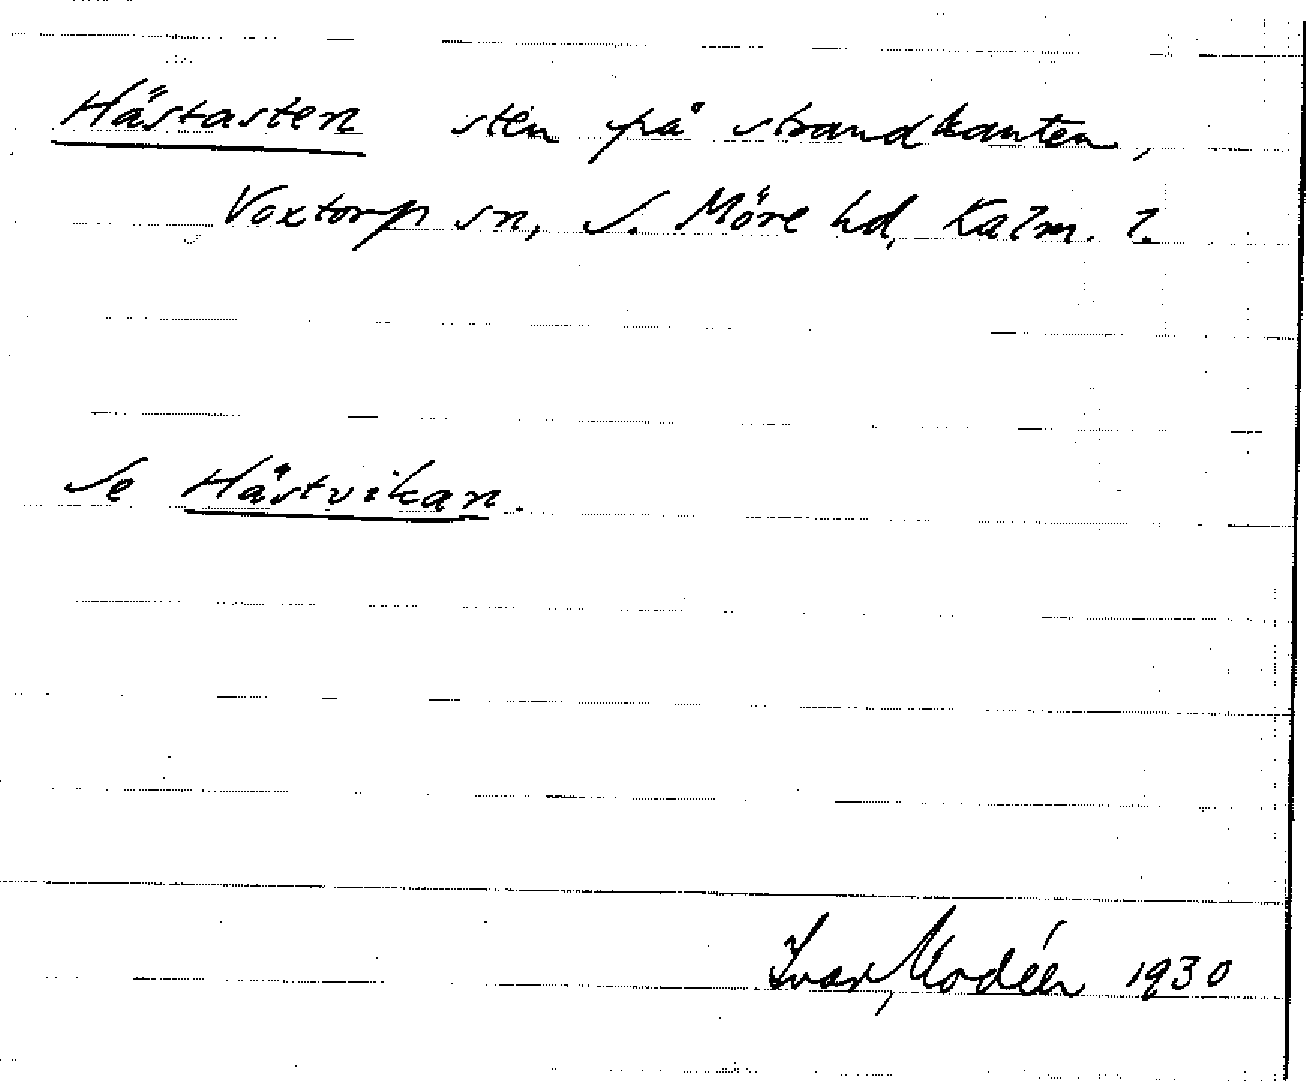 Hästasten sten på strandkanten,
Voxtorp sn, S. Möre hd, Kalm. l.
Se Hästvikan.
Ivar Modéer 1930